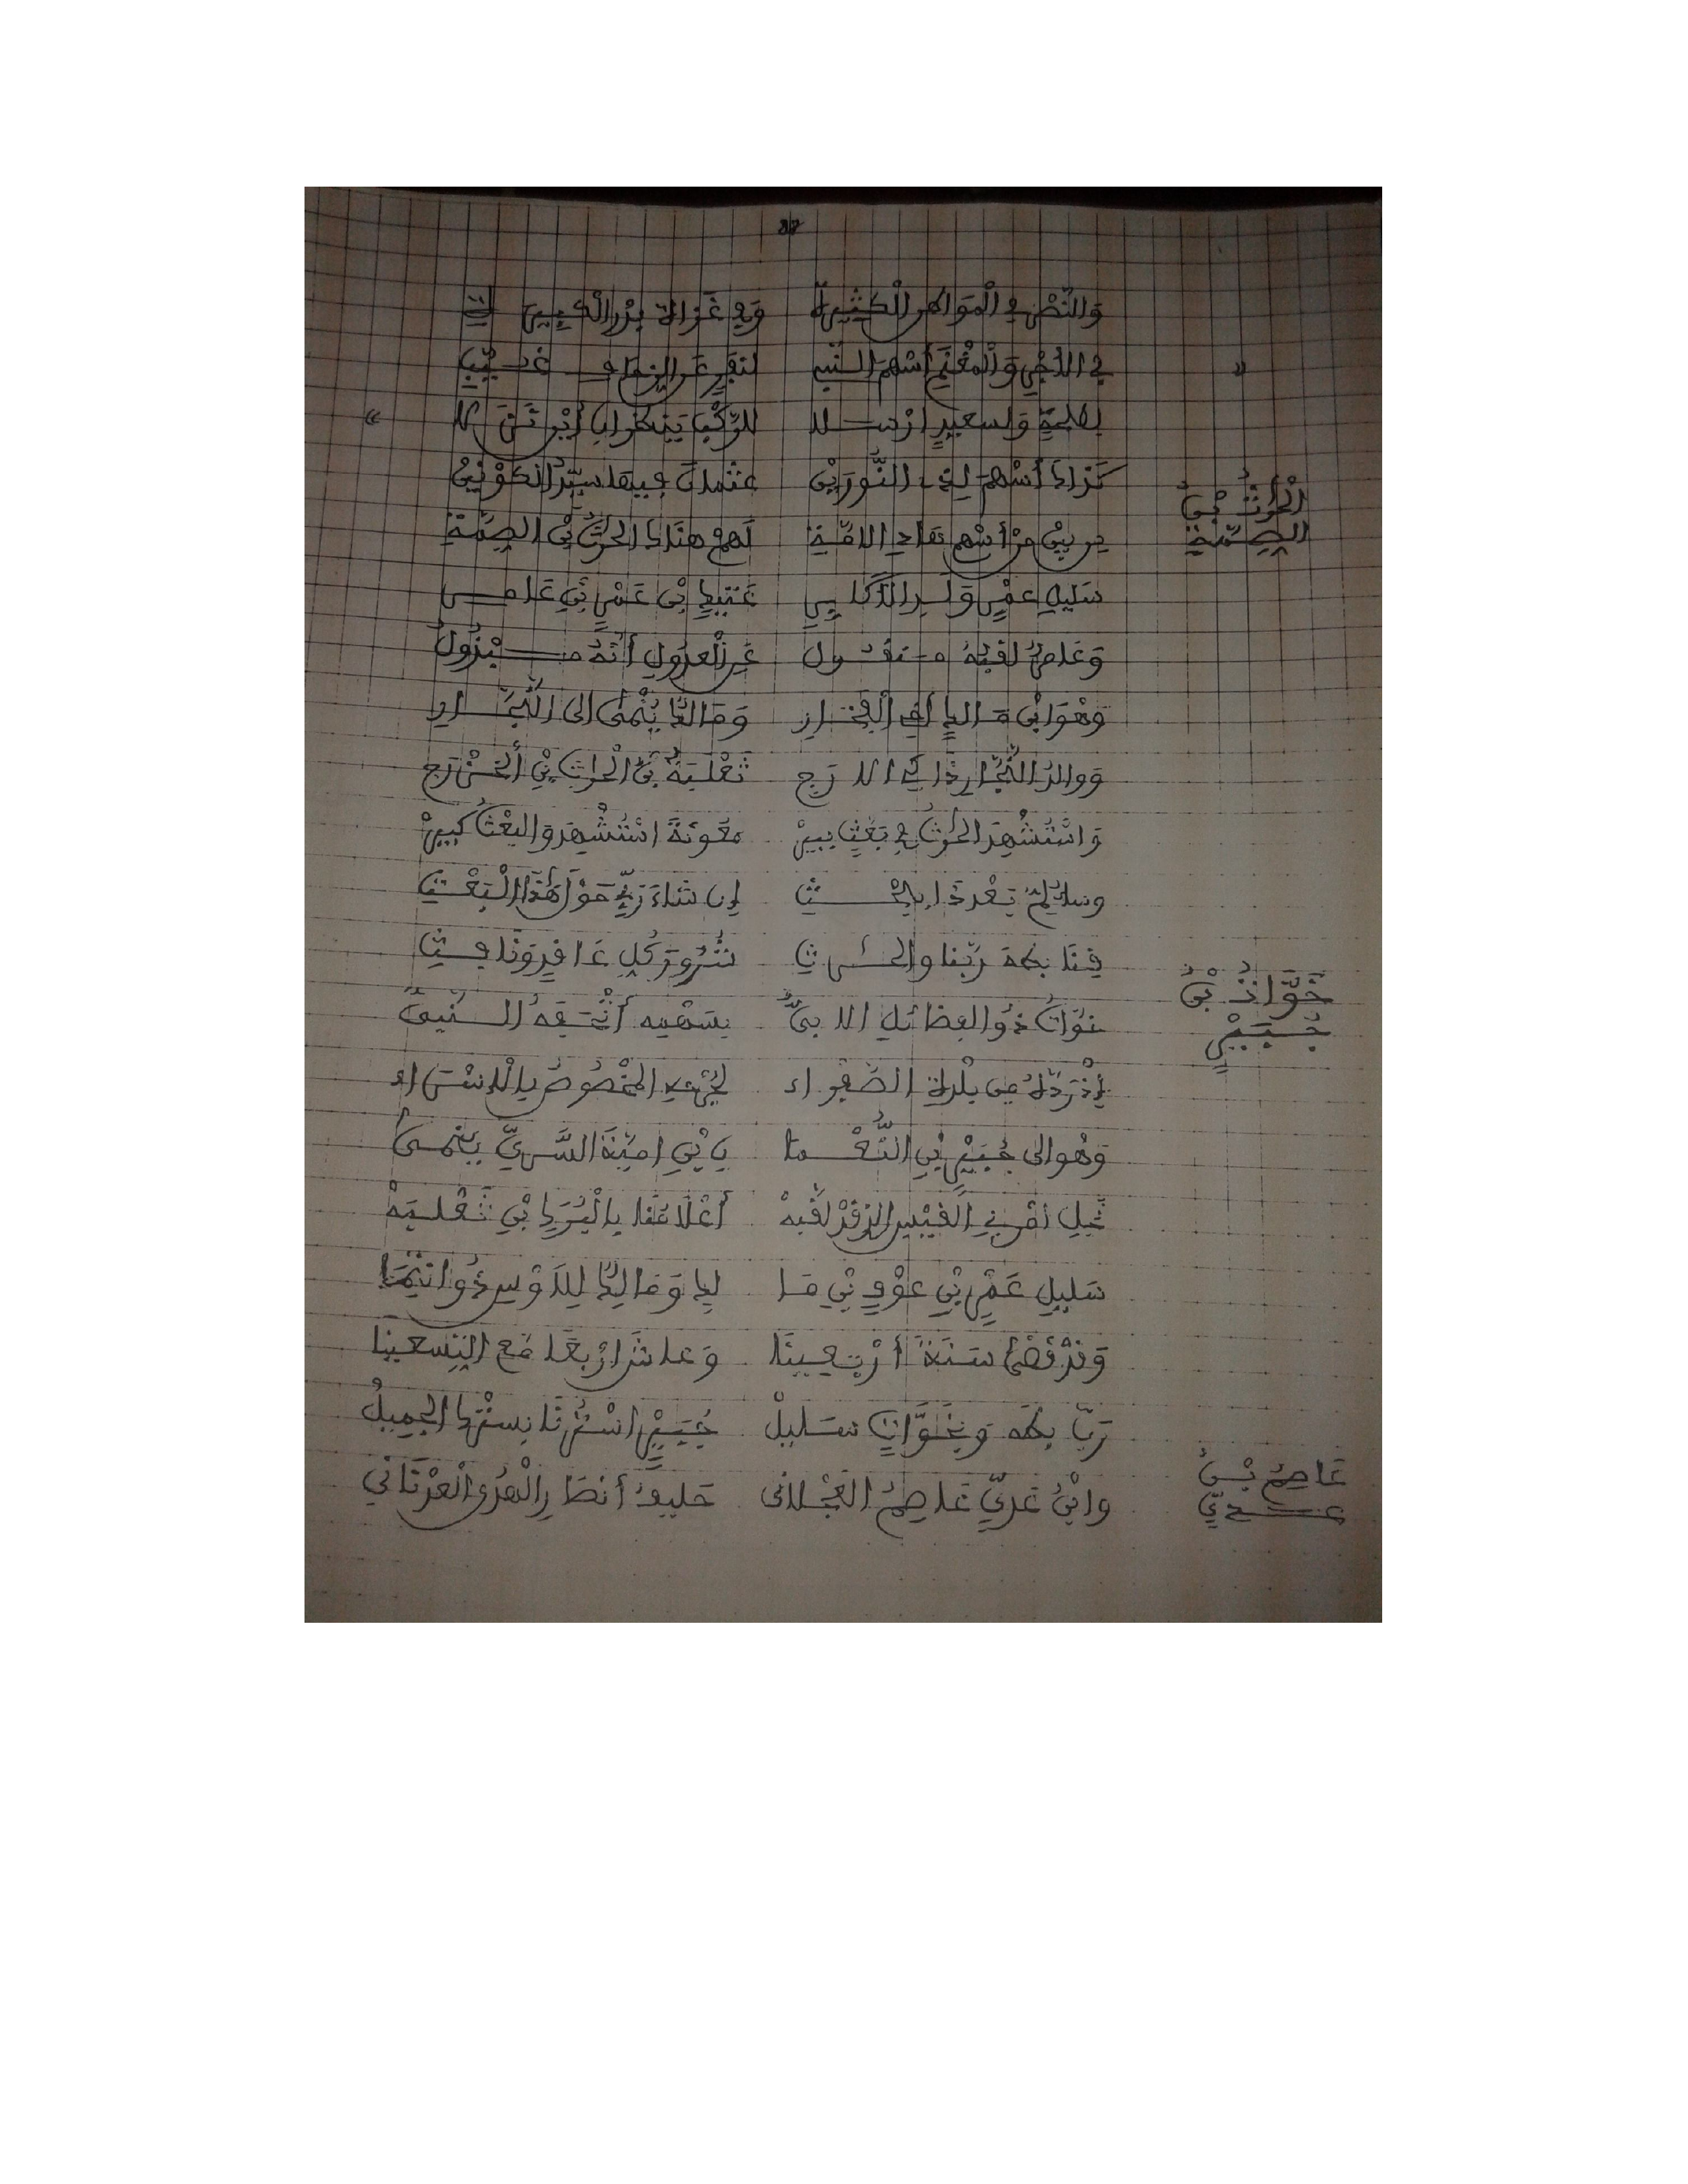 وَالنَّصْرِ فِي الْمَوَاطِنِ الْكَثِيرَهْ وَفِي غَزَاةِ بَدْرٍ الْكَبِيرَهْ
فِي الأَجْرِ وَالْمَغْنَمِ أَسْهَمَ النَّبِي لنفر عن الزحاف غُيَّبِ
لطلحةٍ وَلسعيدٍ أرْسلا للرَّكْبِ يَنظران أَيْنَ نَزَلا
كَذَاكَ أَسْهَمَ لذي النُّورَيْنِ عثمانَ فيها سيّدُ الْكَوْنَيْنِ
الْحَرْثُ بْنُ
الصِّمَّةِ
مَنْ أَسْهم هادي الامَّةِ لَهمْ هناك الحرْثُ بْنُ الصِّمَّةِ
سَليلِ عمْرٍو وَلدِ الأَكابِرِ عَتيكِ بْنِ عَمْرِو بْنِ عَامِرِ
وَعَامرٌ لقبُهُ منقول عَنِ الْعدولِ أنَّهُ مَبْذُولُ
وَهْوَ ابْنُ مَالكٍ أخي الْفِخَارِ وَمَالكٌ يُنْمَى الى النَّجَّارِ
وَوالدُ النَّجَّارِ ذَاكِي الارَجِ ثَعْلَبَةُ بْنُ الْحرْثِ بْنِ الْخَزْرَجِ
وَاسْتُشْهِدَ الحَرْثُ فِي بَعْثِ بِيرْ مَعُونَةَ اسْتُشْهِدَ وَالبعْثُ كَبِيرْ
وسائِلمْ بَعْدَ ذَا بِالْحَثِّ إن شاءَ رَبِّي حَوْلَ هَذَا الْبَعْثِ
قِنَا بِطَهَ رَبَّنَا والحَرْثِ شُرُورَ كُلِّ عَافِرٍ وَنَافِثِ
خَوَّاتُ بْنُ
جُبَيْرٍ
خَوَّاتُ ذُو الفضائلِ الابيُّ بِسَهْمِهِ أَتْحَفَهُ النَّبِيُّ
إِذْ رَدَّهُ مِن بلْدَةِ الصَّفْرَاء لِجُرْحِهِ الْمَخْصُوصُ بِالإِسْرَاء
وَهُوَ الى جُبَيْرِ بْنِ النُّعْمَا نِ بْنِ امَيَّةَ السَّرِيِّ يُنْمَى
نَجْلِ امْرِئِ الْقَيْسِ الذ قَدْ لَقَّبَهْ أَعْلامُنَا بِالْبُرَكِ بْنِ ثَعْلَبَهْ
سَلِيلِ عَمْرِو بْنِ عَوْفِ بْنِ مَا لِكٍ وَمَالِكٌ لِلَاوْسِ ذُو انْتِمَا
وَقَدْ قَضَى سَنَةَ أَرْبَعِينَا وَعاشَ ارْبَعًا مَعَ التِّسعينا
رَبِّ بِطَهَ وَبِخَوَّاتٍ سَلِيلْ جُبَيْرٍ اسْتُرْنَا بِسَتْرِكَ الْجَمِيلْ
عَاصِمُ بْنُ
عَدِيٍّ
وابْنُ عَدِيٍّ عَاصِمُ الْعَجْلانِي حَلِيفُ أَنصَارِ الْهُدَى الْعَدْنَانِي